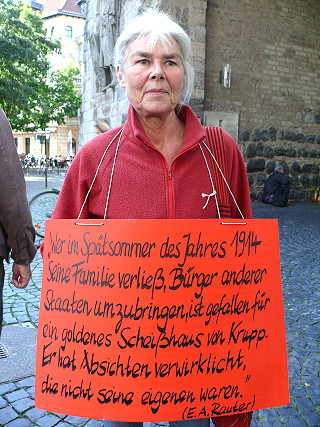 "Wer im Spätsommer des Jahres 1914
seine Familie verließ, Bürger anderer
Staaten umzubringen, ist gefallen für
ein goldenes Scheißhaus von Krupp.
Er hat Absichten verwirklicht,
die nicht seine eigenen waren."
(E.A. Rauter)